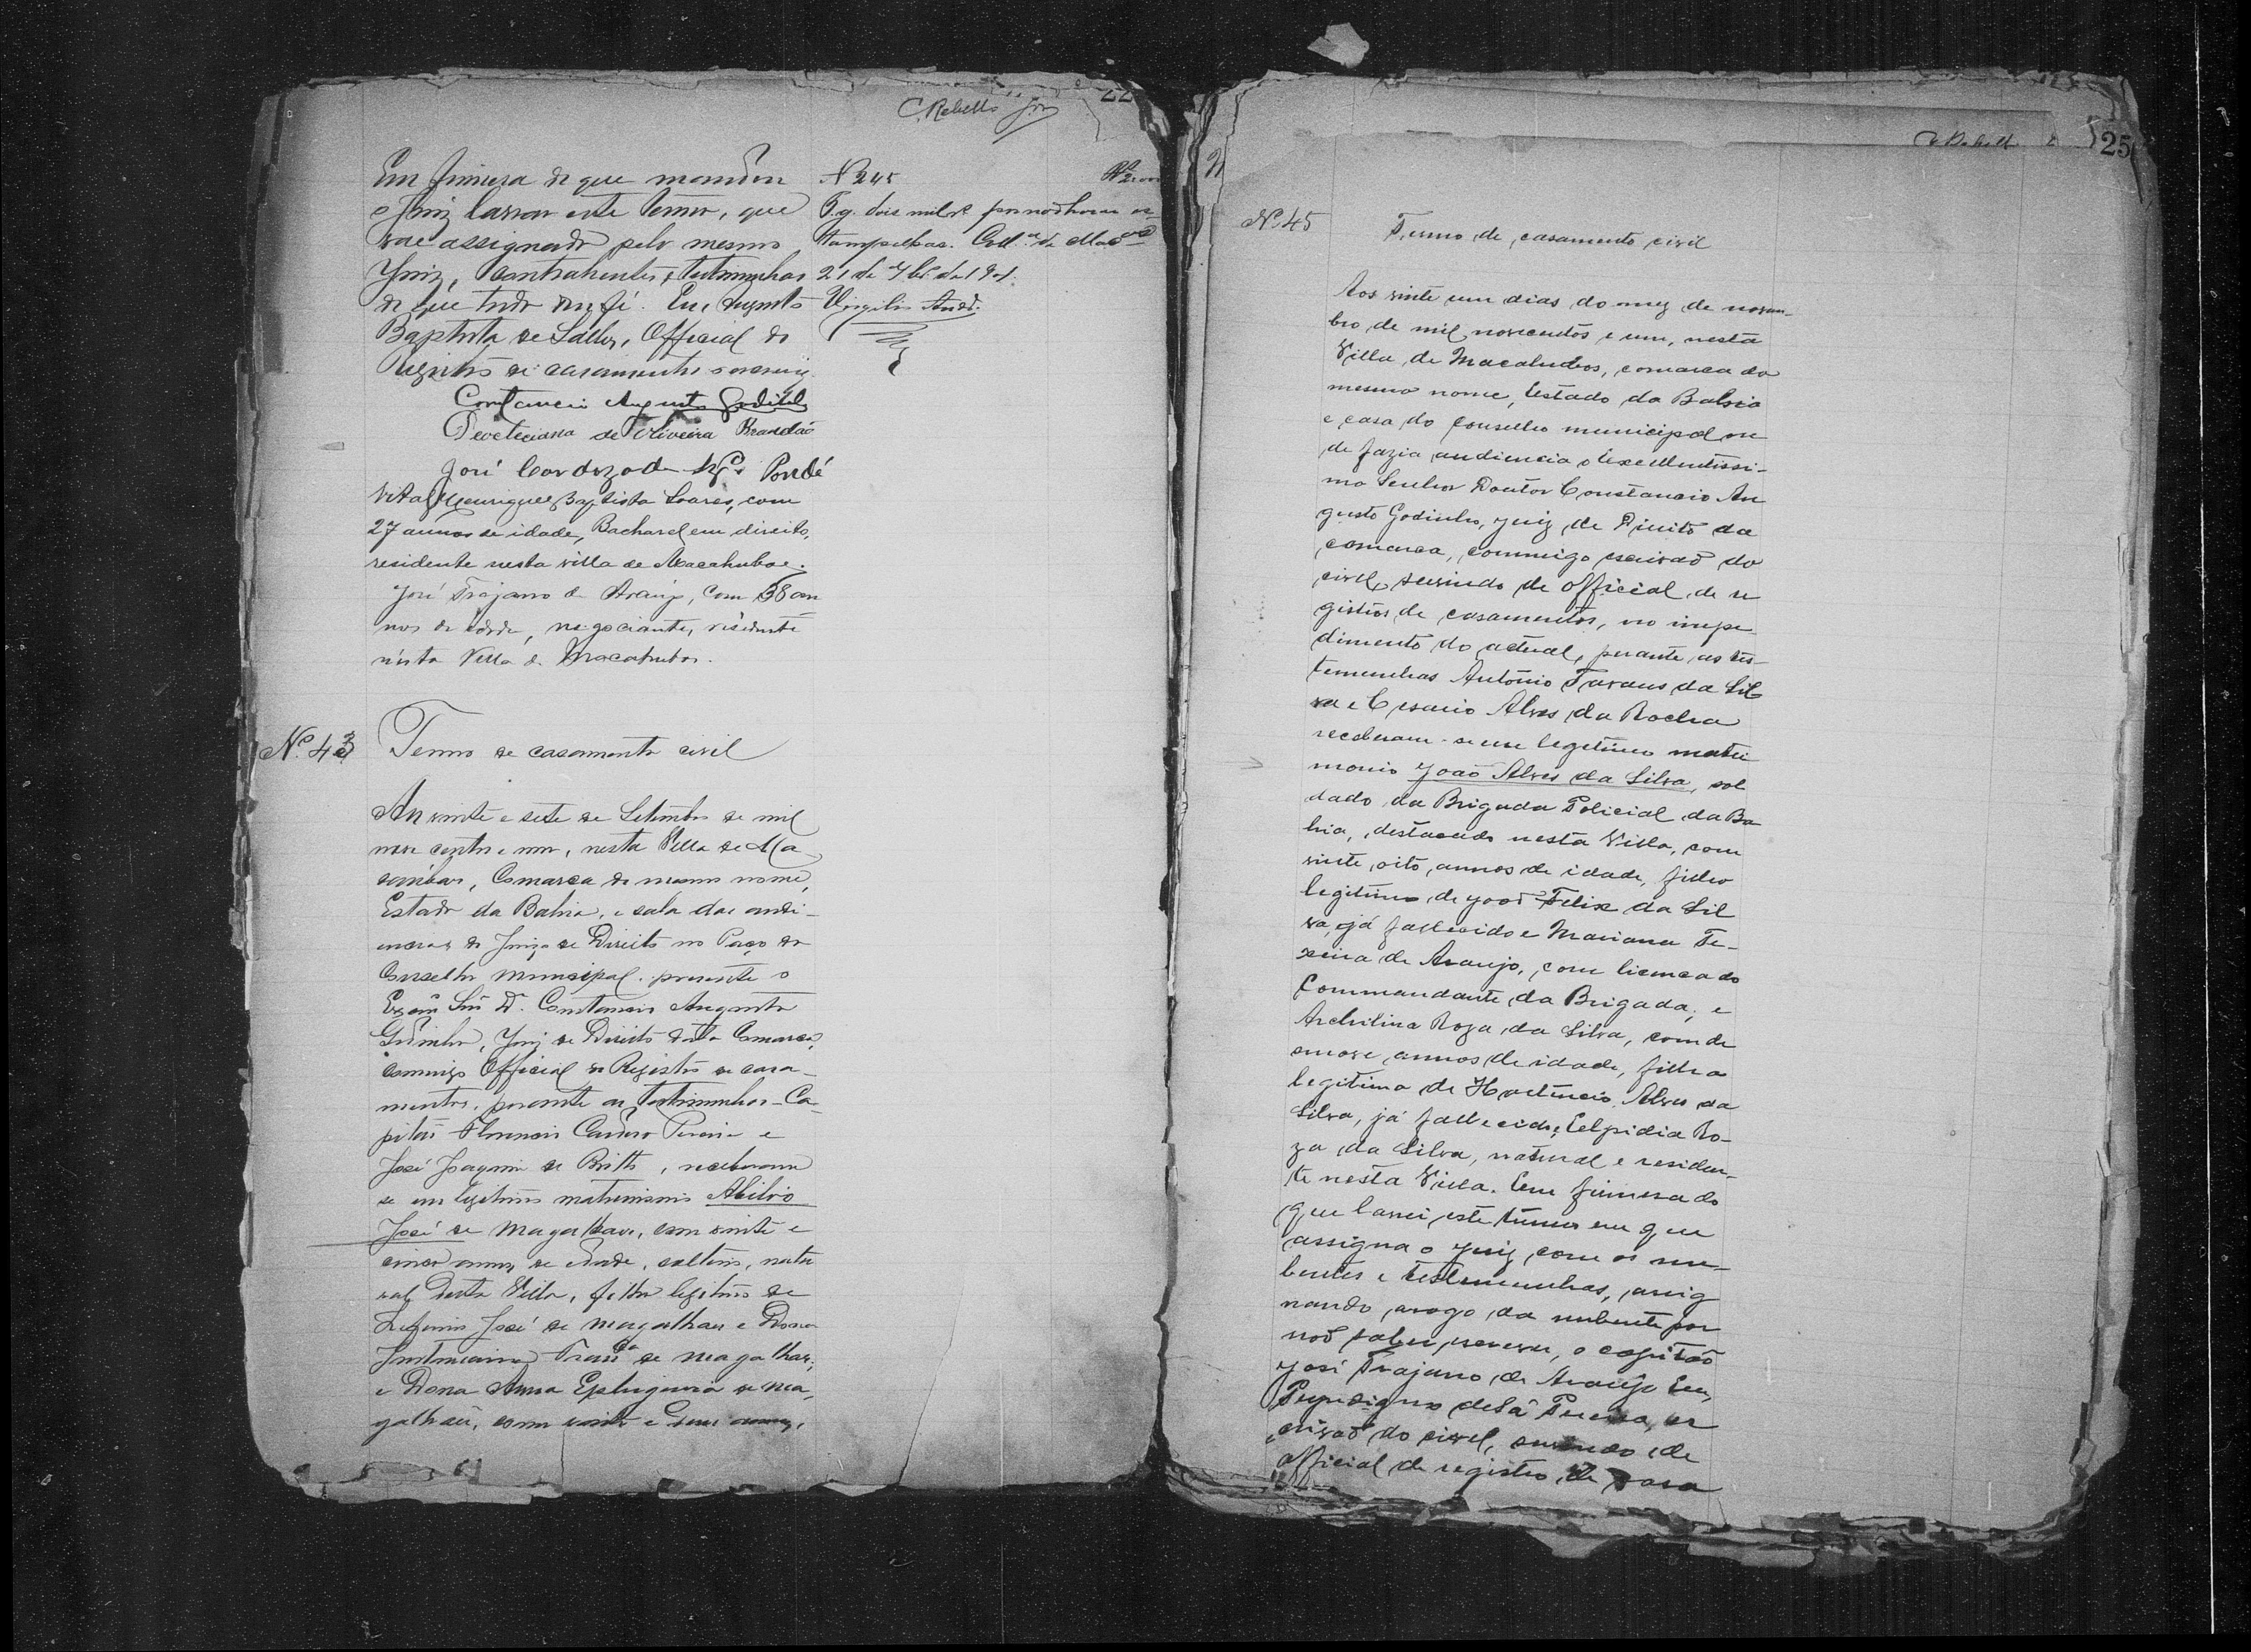 C. Rebello Jor
22
Em firmeza do que mandou
o Juiz lavrar este termo, que
vae assignado pelo mesmo
Juiz, Contrahentes, e testemunhas
do que tudo dou fé. Eu, Augusto
Baptista de Salles, Official do
Registro de casamentos o escrevi.
Constancio Augusto Godinho
de Oliveira Brandão
José Cardozo de Pondé
Vital Henriques Baptista Soares, com
27 annos de idade, Bacharel em direito,
residente nesta villa de Macahubas.
José Trajano de Araujo, com 38 an
nos de idade, negociante, residente
nesta Villa de Macahubas.
N 245
Pg. dois mil rs por não haver es-
tampilhas. Coll.a de Mac
21 de 7br de 1901.
Virgilio
Nº 43
Termo de casamento civil
Aos vinte e sete de Setembro de mil
nove centos e um, nesta Villa de Ma
cahubas, Comarca do mesmo nome,
Estado da Bahia, e sala das audi-
encias do Juizo de Direito no Paço do
Conselho Municipal, presente o
Exmo Snr Dr. Constancio Augusto
Godinho, Juiz de Direito desta Comarca,
commigo Official do Registro de casa-
mentos, perante as testemunhas - Ca-
pitão Florencio Cardoso Pereira e
José Joaquim de Britto, receberam
se em legitimo matrimonio Abilio
José de Magalhães, com vinte e
cinco annos de idade, solteiro, natu
ral desta Villa, filho legitimo de
José de Magalhães e Dona
de Magalhães,
e Dona Anna Ephigenia de Ma-
galhães, com vinte e um annos,
25
Nº 45
Termo de casamento civil
Aos vinte um dias do mez de novem-
bro de mil novecentos e um, nesta
Villa de Macahubas, comarca do
mesmo nome, Estado da Bahia
e casa do Conselho municipal on
de fazia audiencia o Excellentissi-
mo Senhor Doutor Constancio Au
gusto Godinho, Juiz de Direito da
comarca, commigo escrivão do
civel, servindo de official de re
gistros de casamentos, no impe-
dimento do actual, perante as tes-
temunhas Antonio Tavares da Sil
va e Cesario Alves da Rocha
receberam-se em legitimo matri
monio João Alves da Silva, sol
dado da Brigada Policial da Ba
hia, destacado nesta Villa, com
vinte oito annos de idade, filho
legitimo de João Felix da Sil
va, já fallecido e Mariana Te-
xeira de Araujo, com licença do
Commandante da Brigada; e
Archilina Roza da Silva, com de
znove annos de idade, filha
legitima de Hortencio Alves da
Silva, já fallecido, e Elpidia Ro-
za da Silva, natural e residen-
te nesta Villa. Em firmeza do
que lavrei este termo em que
assigna o Juiz com os nu-
bentes e testemunhas, assig
nando arogo da nubente por
não saber escrever, o capitão
José Trajano de Araujo. Eu,
de Sá Pereira, es
crivão do civel, servindo de
official de registro de casa